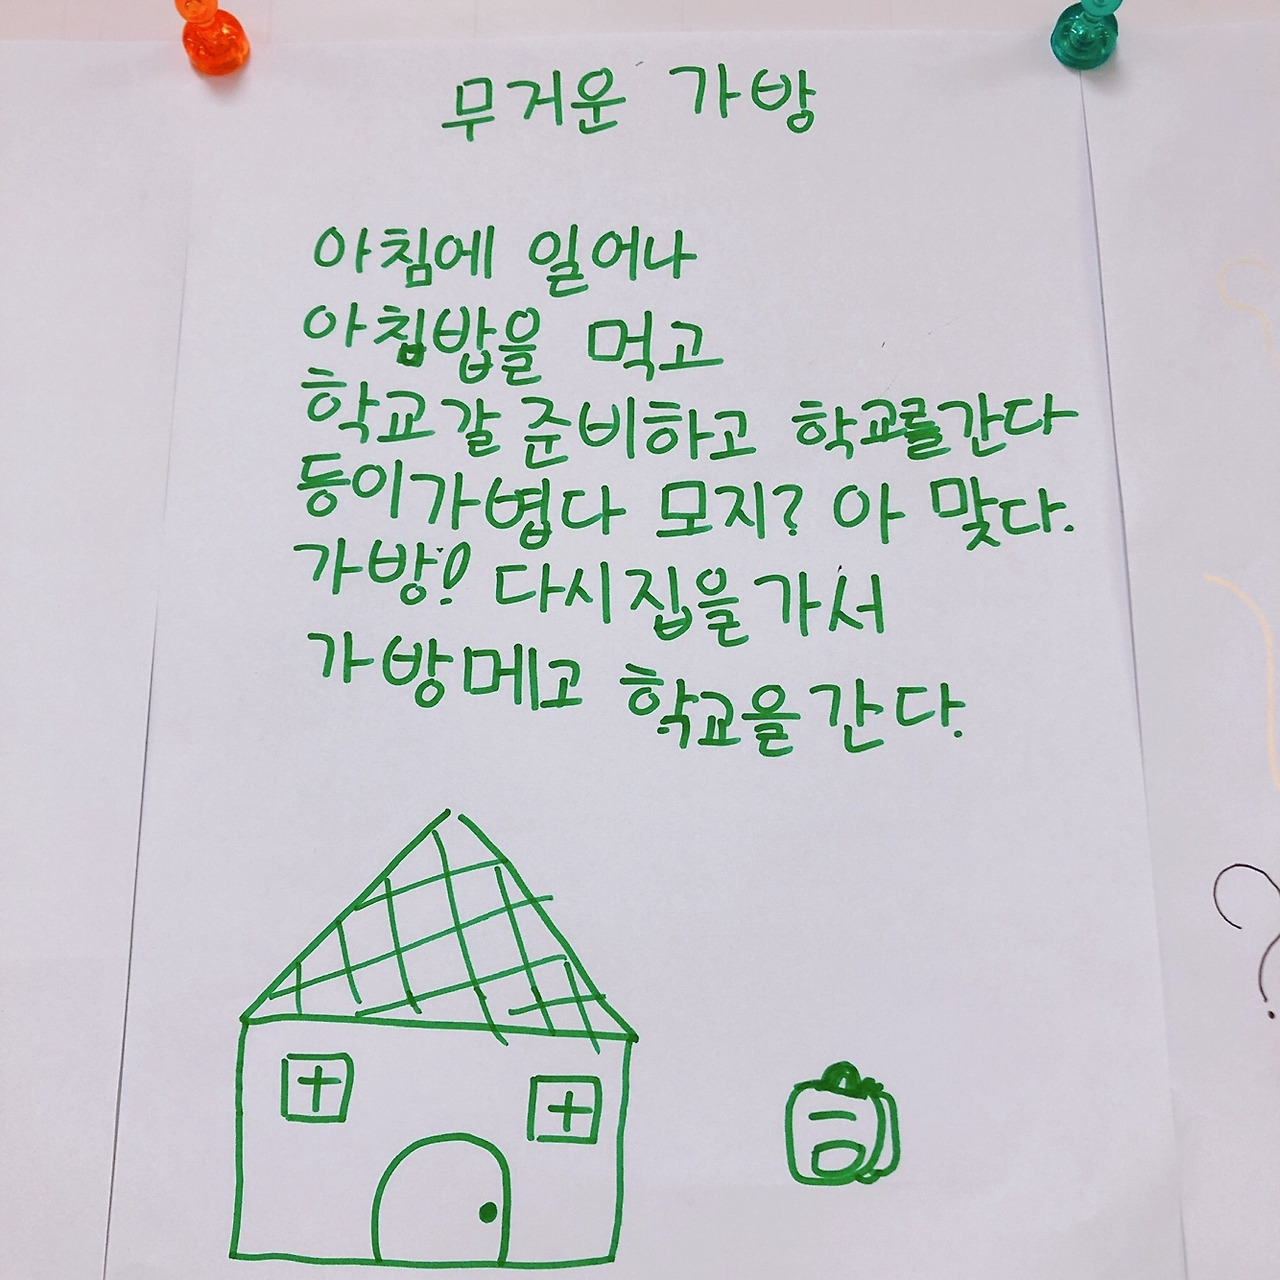 무거운 가방
아침에 일어나
아침밥을 먹고
학교갈 준비하고 학교를간다
등이가볍다 모지? 아 맞다.
가방! 다시집을가서
가방메고 학교을간다.